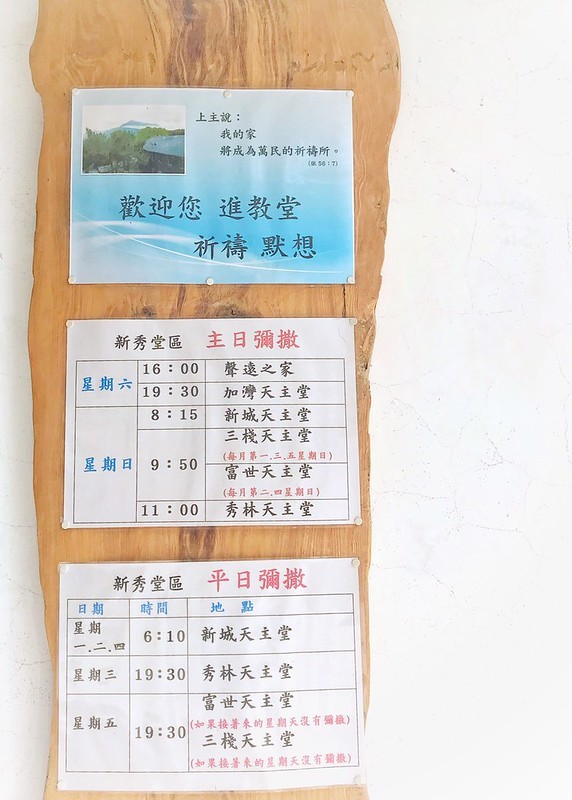 上主說：
我的家
將成為萬民的祈禱所。
(依 56：7)
歡迎您 進教堂
祈禱 默想
新秀堂區 主日彌撒
星期六 16：00 聲遠之家
19：30 加灣天主堂
星期日 8：15 新城天主堂
9：50 三棧天主堂
(每月第一.三.五星期日)
富世天主堂
(每月第二.四星期日)
11：00 秀林天主堂
新秀堂區 平日彌撒
日期 時間 地 點
星期
一.二.四 6：10 新城天主堂
星期三 19：30 秀林天主堂
星期五 19：30 富世天主堂
(如果接著來的星期天沒有彌撒)
三棧天主堂
(如果接著來的星期天沒有彌撒)